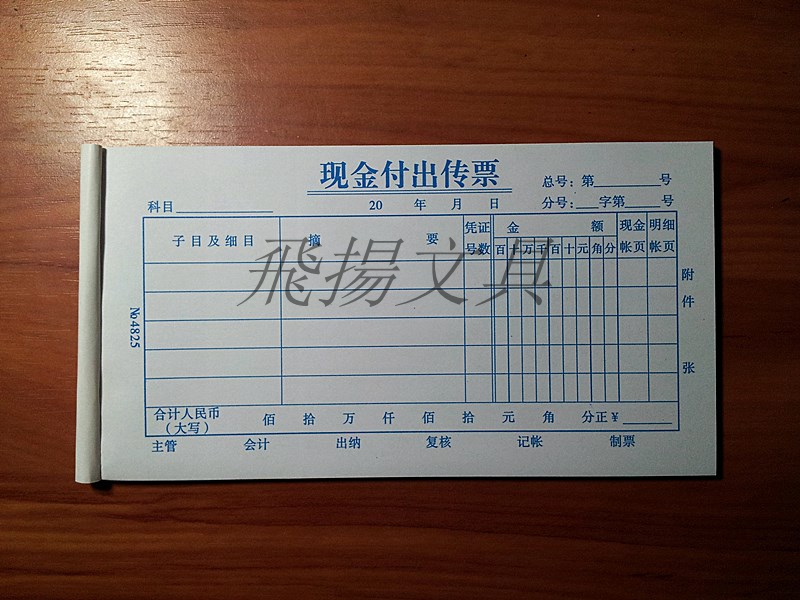 现金付出传票
总号：第______号
科目______ 20 年 月 日 分号：___字第_____号
子目及细目 摘 要 凭证号数 金 额 现金帐页 明细帐页
百十万千百十元角分
飛揚文具
附件 张
№4825
合计人民币（大写） 佰 拾 万 仟 佰 拾 元 角 分正¥______
主管 会计 出纳 复核 记帐 制票